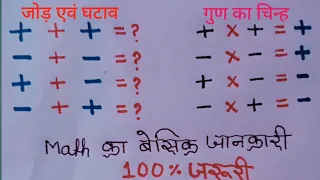 जोड़ एवं घटाव
गुण का चिन्ह
+ + + = ? + × + = +
− + − = ? − × − = +
+ + − = ? + × − = −
− + + = ? − × + = −
Math का बेसिक जानकारी
100% जरूरी